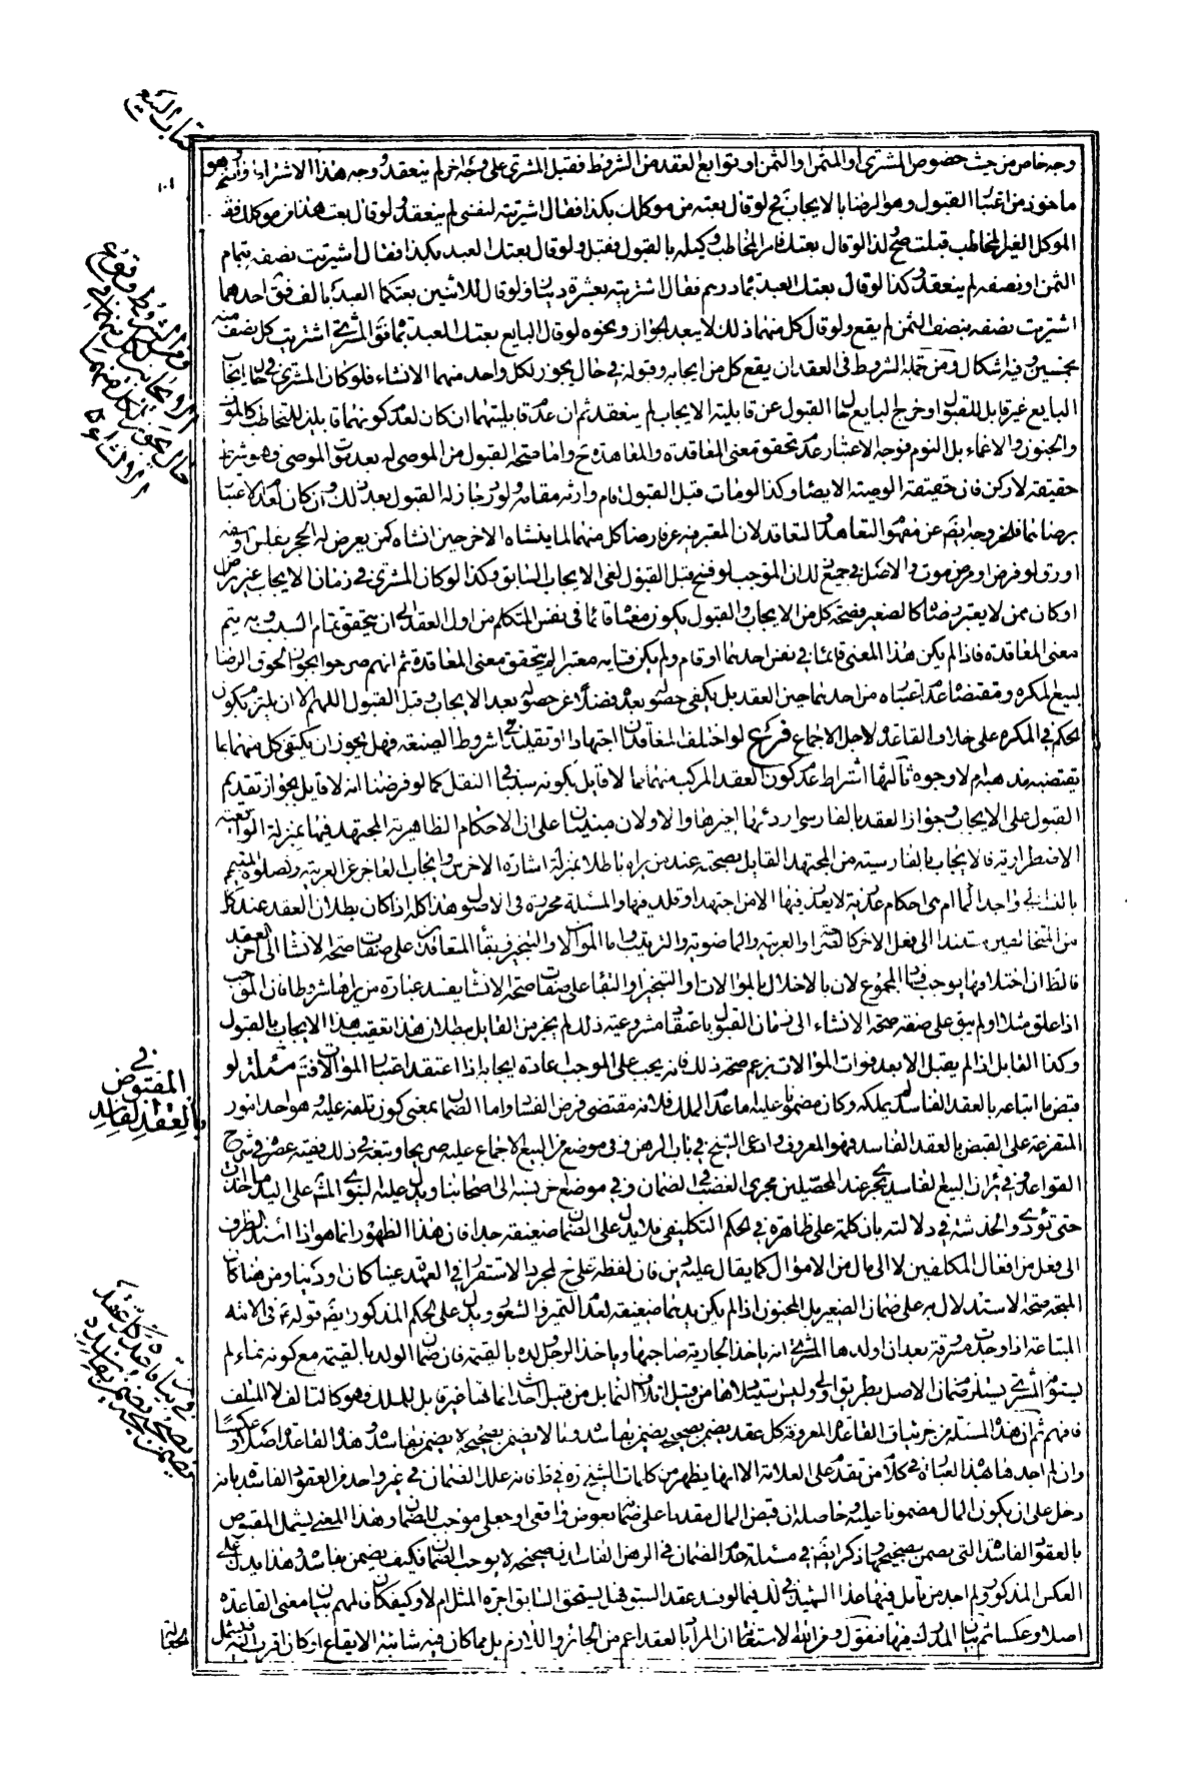 كتاب البيع
١٠١
وجه خاص من حيث خصوص المشتري او المثمن او الثمن او توابع العقد من الشروط فقبل المشتري على وجه اخر لم ينعقد ووجه هذا الاشتراط واضح وهو
ماخوذ من اعتبار القبول وهو الرضا بالايجاب فح لو قال بعته من موكلك بكذا فقال اشتريته لنفسي لم ينعقد ولو قال بعت هذا من موكلك فقال
الموكل الغير المخاطب قبلت صح وكذا لو قال بعتك فامر المخاطب وكيله بالقبول فقبل ولو قال بعتك العبد بكذا فقال اشتريت نصفه بتمام
الثمن او نصفه بنصف الثمن لم ينعقد وكذا لو قال بعتك العبد بمائة درهم فقال اشتريته بعشرة دينار ولو قال للاثنين بعتكما العبد بالف فقال احدهما
اشتريت نصفه بنصف الثمن لم يقع ولو قال كل منهما ذلك لا يبعد الجواز ونحوه لو قال البايع بعتك العبد بمائة فقال المشتري اشتريت كل نصف منه
بخمسين وفيه اشكال ومن جملة الشروط في العقد ان يقع كل من ايجابه وقبوله في حال يجوز لكل واحد منهما الانشاء فلو كان المشتري في حال ايجاب
البايع غير قابل للقبول او خرج البايع حال القبول عن قابلية الايجاب لم ينعقد ثم ان عدم قابليتهما ان كان لعدم كونهما قابلين للتخاطب كالموت
والجنون والاغماء بل النوم فوجه الاعتبار عدم تحقق معنى المعاقدة والمعاهدة ح واما صحة القبول من الموصى له بعد موت الموصي فهو شرط
حقيقة لا ركن فان حقيقة الوصية الايصاء ولذا لو مات قبل القبول قام وارثه مقامه ولو رد جاز له القبول بعد ذلك وان كان لعدم الاعتبار
برضاهما فلخروجه ايضا عن مفهوم التعاهد والتعاقد لان المعتبر فيه عرفا رضا كل منهما لما ينشاه الاخر حين انشائه كمن يعرض له الحجر بفلس او سفه
او رق لو فرض او مرض موت والاصل في جميع ذلك ان الموجب لو فسخ قبل القبول لغى الايجاب السابق وكذا لو كان المشتري في زمان الايجاب غير راض
او كان ممن لا يعتبر رضاه كالصغير فصحة كل من الايجاب والقبول يكون معناه قائما في نفس المتكلم من اول العقد الى ان يتحقق تمام السبب وبه يتم
معنى المعاقدة فاذا لم يكن هذا المعنى قائما في نفس احدهما او قام ولم يكن قيامه معتبرا لم يتحقق معنى المعاقدة ثم انهم صرحوا بجواز لحوق الرضا
لبيع المكره ومقتضاه عدم اعتباره من احدهما حين العقد بل يكفي حصوله بعده فضلا عن حصوله بعد الايجاب وقبل القبول اللهم الا ان يلتزم بكون
الحكم في المكره على خلاف القاعدة لاجل الاجماع فرع لو اختلف المتعاقدان اجتهادا او تقليدا في شروط الصيغة فهل يجوز ان يكتفي كل منهما بما
يقتضيه مذهبه ام لا وجوه ثالثها اشتراط عدم كون العقد المركب منهما مما لا قايل بكونه سببا في النقل كما لو فرضنا انه لا قايل بجواز تقديم
القبول على الايجاب وجواز العقد بالفارسي اردئها اخيرها والاولان مبنيان على ان الاحكام الظاهرية المجتهد فيها بمنزلة الواقعية
الاضطرارية فالايجاب بالفارسية من المجتهد القايل بصحته عند من يراه باطلا بمنزلة اشارة الاخرس وايجاب العاجز عن العربية وكصلوة المتيمم
بالنسبة الى واجد الماء ام هي احكام عذرية لا يعذر فيها الا من اجتهد او قلد فيها والمسئلة محررة في الاصول هذا كله اذا كان بطلان العقد عند كل
من المتخالفين مستندا الى فعل الاخر كالصراحة والعربية والماضوية والترتيب واما الموالات والتنجيز وبقاء المتعاقدين على صفات صحة الانشاء الى اخر العقد
فالظ ان اختلافها يوجب فساد المجموع لان بالاخلال بالموالات او التنجيز او البقاء على صفات صحة الانشاء يفسد عبارة من يراها شروطا فان الموجب
اذا علق مثلا او لم يبق على صفة صحة الانشاء الى زمان القبول باعتقاد مشروعية ذلك لم يجز من القايل ببطلان هذا تعقيب هذا الايجاب بالقبول
وكذا القابل اذا لم يقبل الا بعد فوات الموالات بزعم صحة ذلك فانه يجب على الموجب اعادة ايجابه اذا اعتقد اعتبار الموالات فتم مسئلة لو
قبض ما ابتاعه بالعقد الفاسد لم يملكه وكان مضمونا عليه اما عدم الملك فلانه مقتضى فرض الفساد واما الضمان بمعنى كون تلفه عليه وهو احد امور
المتفرعة على القبض بالعقد الفاسد فهو المعروف وادعى الشيخ في باب الرهن وفي موضع من البيع الاجماع عليه صريحا وتبعه في ذلك فقيه عصره في شرح
القواعد وفي ئر ان البيع الفاسد يجري عند المحصلين مجرى الغصب في الضمان وفي موضع اخر نسبه الى اصحابنا ويدل عليه النبوي المش على اليد ما اخذت
حتى تؤدي والخدشة في دلالته بان كلمة على ظاهرة في الحكم التكليفي فلا يدل على الضمان ضعيفة جدا فان هذا الظهور انما هو اذا اسند الظرف
الى فعل من افعال المكلفين لا الى مال من الاموال كما يقال عليه دين فان لفظة على ح لمجرد الاستقرار في العهدة عينا كان او دينا ومن هنا كان
المتجه صحة الاستدلال به على ضمان الصغير بل المجنون اذا لم يكن يدهما ضعيفة لعدم التمييز والشعور ويدل على الحكم المذكور ايضا قوله ع في الامة
المبتاعة اذا وجدت مسروقة بعد ان اولدها المشتري انه ياخذ الجارية صاحبها وياخذ الرجل ولده بالقيمة فان ضمان الولد بالقيمة مع كونه نماء لم
يستوفه المشتري يستلزم ضمان الاصل بطريق اولى وليس استيلادها من قبيل اتلاف النماء بل من قبيل احداث نمائها غير قابل للملك فهو كالتالف لا المتلف
فافهم ثم ان هذه المسئلة من جزئيات القاعدة المعروفة كل عقد يضمن بصحيحه يضمن بفاسده وما لا يضمن بصحيحه لا يضمن بفاسده وهذه القاعدة اصلا وعكسا
وان لم اجدها بهذه العبارة في كلام من تقدم على العلامة الا انها يظهر من كلمات الشيخ ره في ط فانه علل الضمان في غير واحد من العقود الفاسدة بانه
دخل على ان يكون المال مضمونا عليه وحاصله ان قبض المال مقدما على ضمانه بعوض واقعي او جعلي موجب للضمان وهذا المعنى يشمل المقبوض
بالعقود الفاسدة التي يضمن بصحيحها وذكر ايضا في مسئلة عدم الضمان في الرهن الفاسد ان صحيحه لا يوجب الضمان فكيف يضمن بفاسده وهذا يدل على
العكس المذكور ولم اجد من تامل فيها عدا الشهيد في لك فيما لو فسد عقد السبق فهل يستحق السابق اجرة المثل ام لا وكيف كان فالمهم بيان معنى القاعدة
اصلا وعكسا ثم بيان المدرك فيها فنقول ومن الله الاستعانة ان المراد بالعقد اعم من الجائز واللازم بل مما كان فيه شائبة الايقاع او كان اقرب اليه فيشمل
الجعالة
ومن الشروط وقوع
كل من ايجابه وقبوله في
حال يجوز لكل منهما
الانشاء
في
المقبوض
بالعقد الفاسد
في بيان قاعدة كل عقد
يضمن بصحيحه يضمن بفاسده